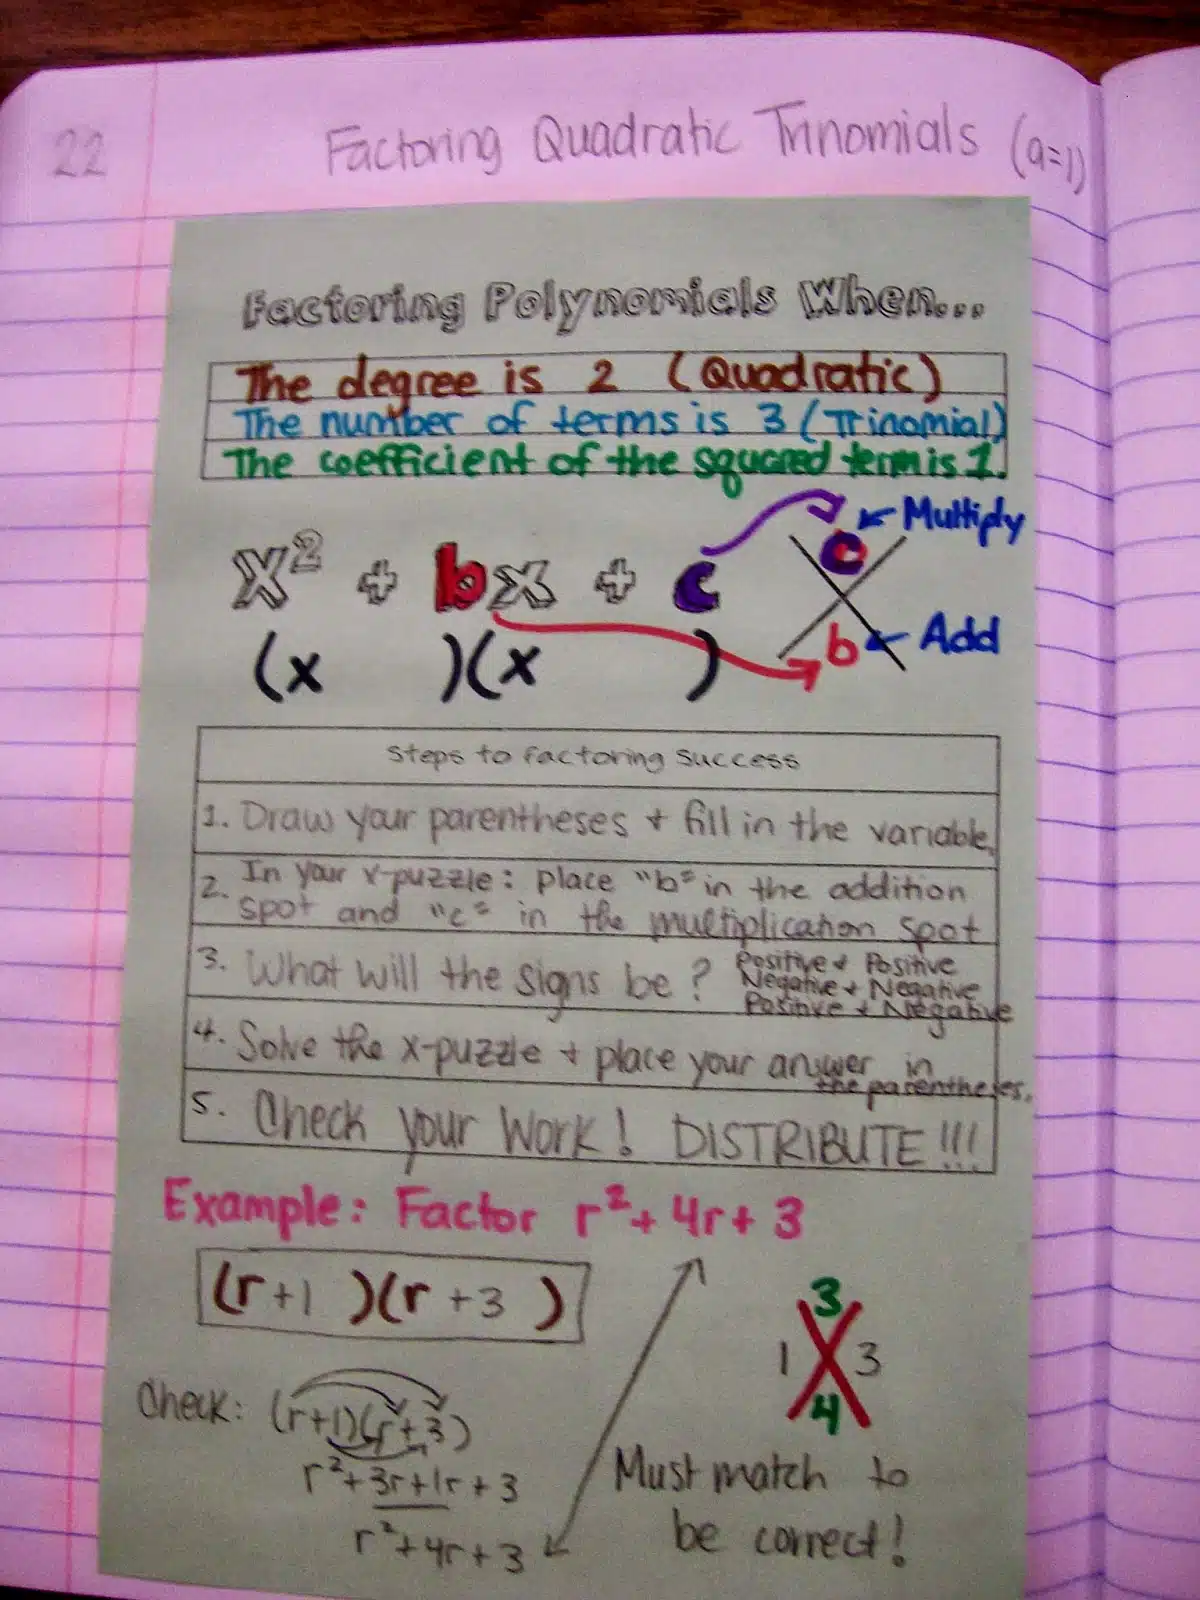 22
Factoring Quadratic Trinomials (a=1)
Factoring Polynomials When...
The degree is 2 (Quadratic)
The number of terms is 3 (Trinomial)
The coefficient of the squared term is 1.
x² + bx + c
c ← Multiply
b ← Add
(x )(x )
Steps to Factoring Success
1. Draw your parentheses + fill in the variable.
2. In your x-puzzle: place "b" in the addition
spot and "c" in the multiplication spot
3. What will the signs be?
Positive + Positive
Negative + Negative
Positive + Negative
4. Solve the x-puzzle + place your answer in
the parentheses.
5. Check your work! DISTRIBUTE!!!
Example: Factor r² + 4r + 3
(r +1 )(r +3 )
3
1 3
4
Check: (r+1)(r+3)
r²+3r+1r+3
r²+4r+3
Must match to
be correct!